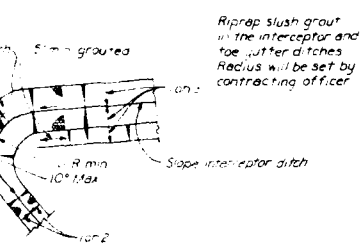 Riprap slush grout
in the interceptor and
toe gutter ditches
Radius will be set by
contracting officer
5' min grouted
R min
10° Max
Slope interceptor ditch
1 on 2